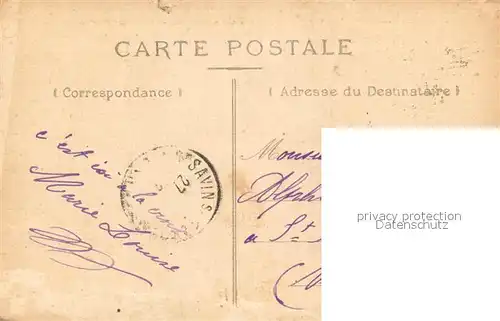 CARTE POSTALE
( Correspondance )
( Adresse du Destinataire )
c'est ici
la
Marie Louise
SAVINS
27
Monsieu
Alpho
a St
privacy protection
Datenschutz